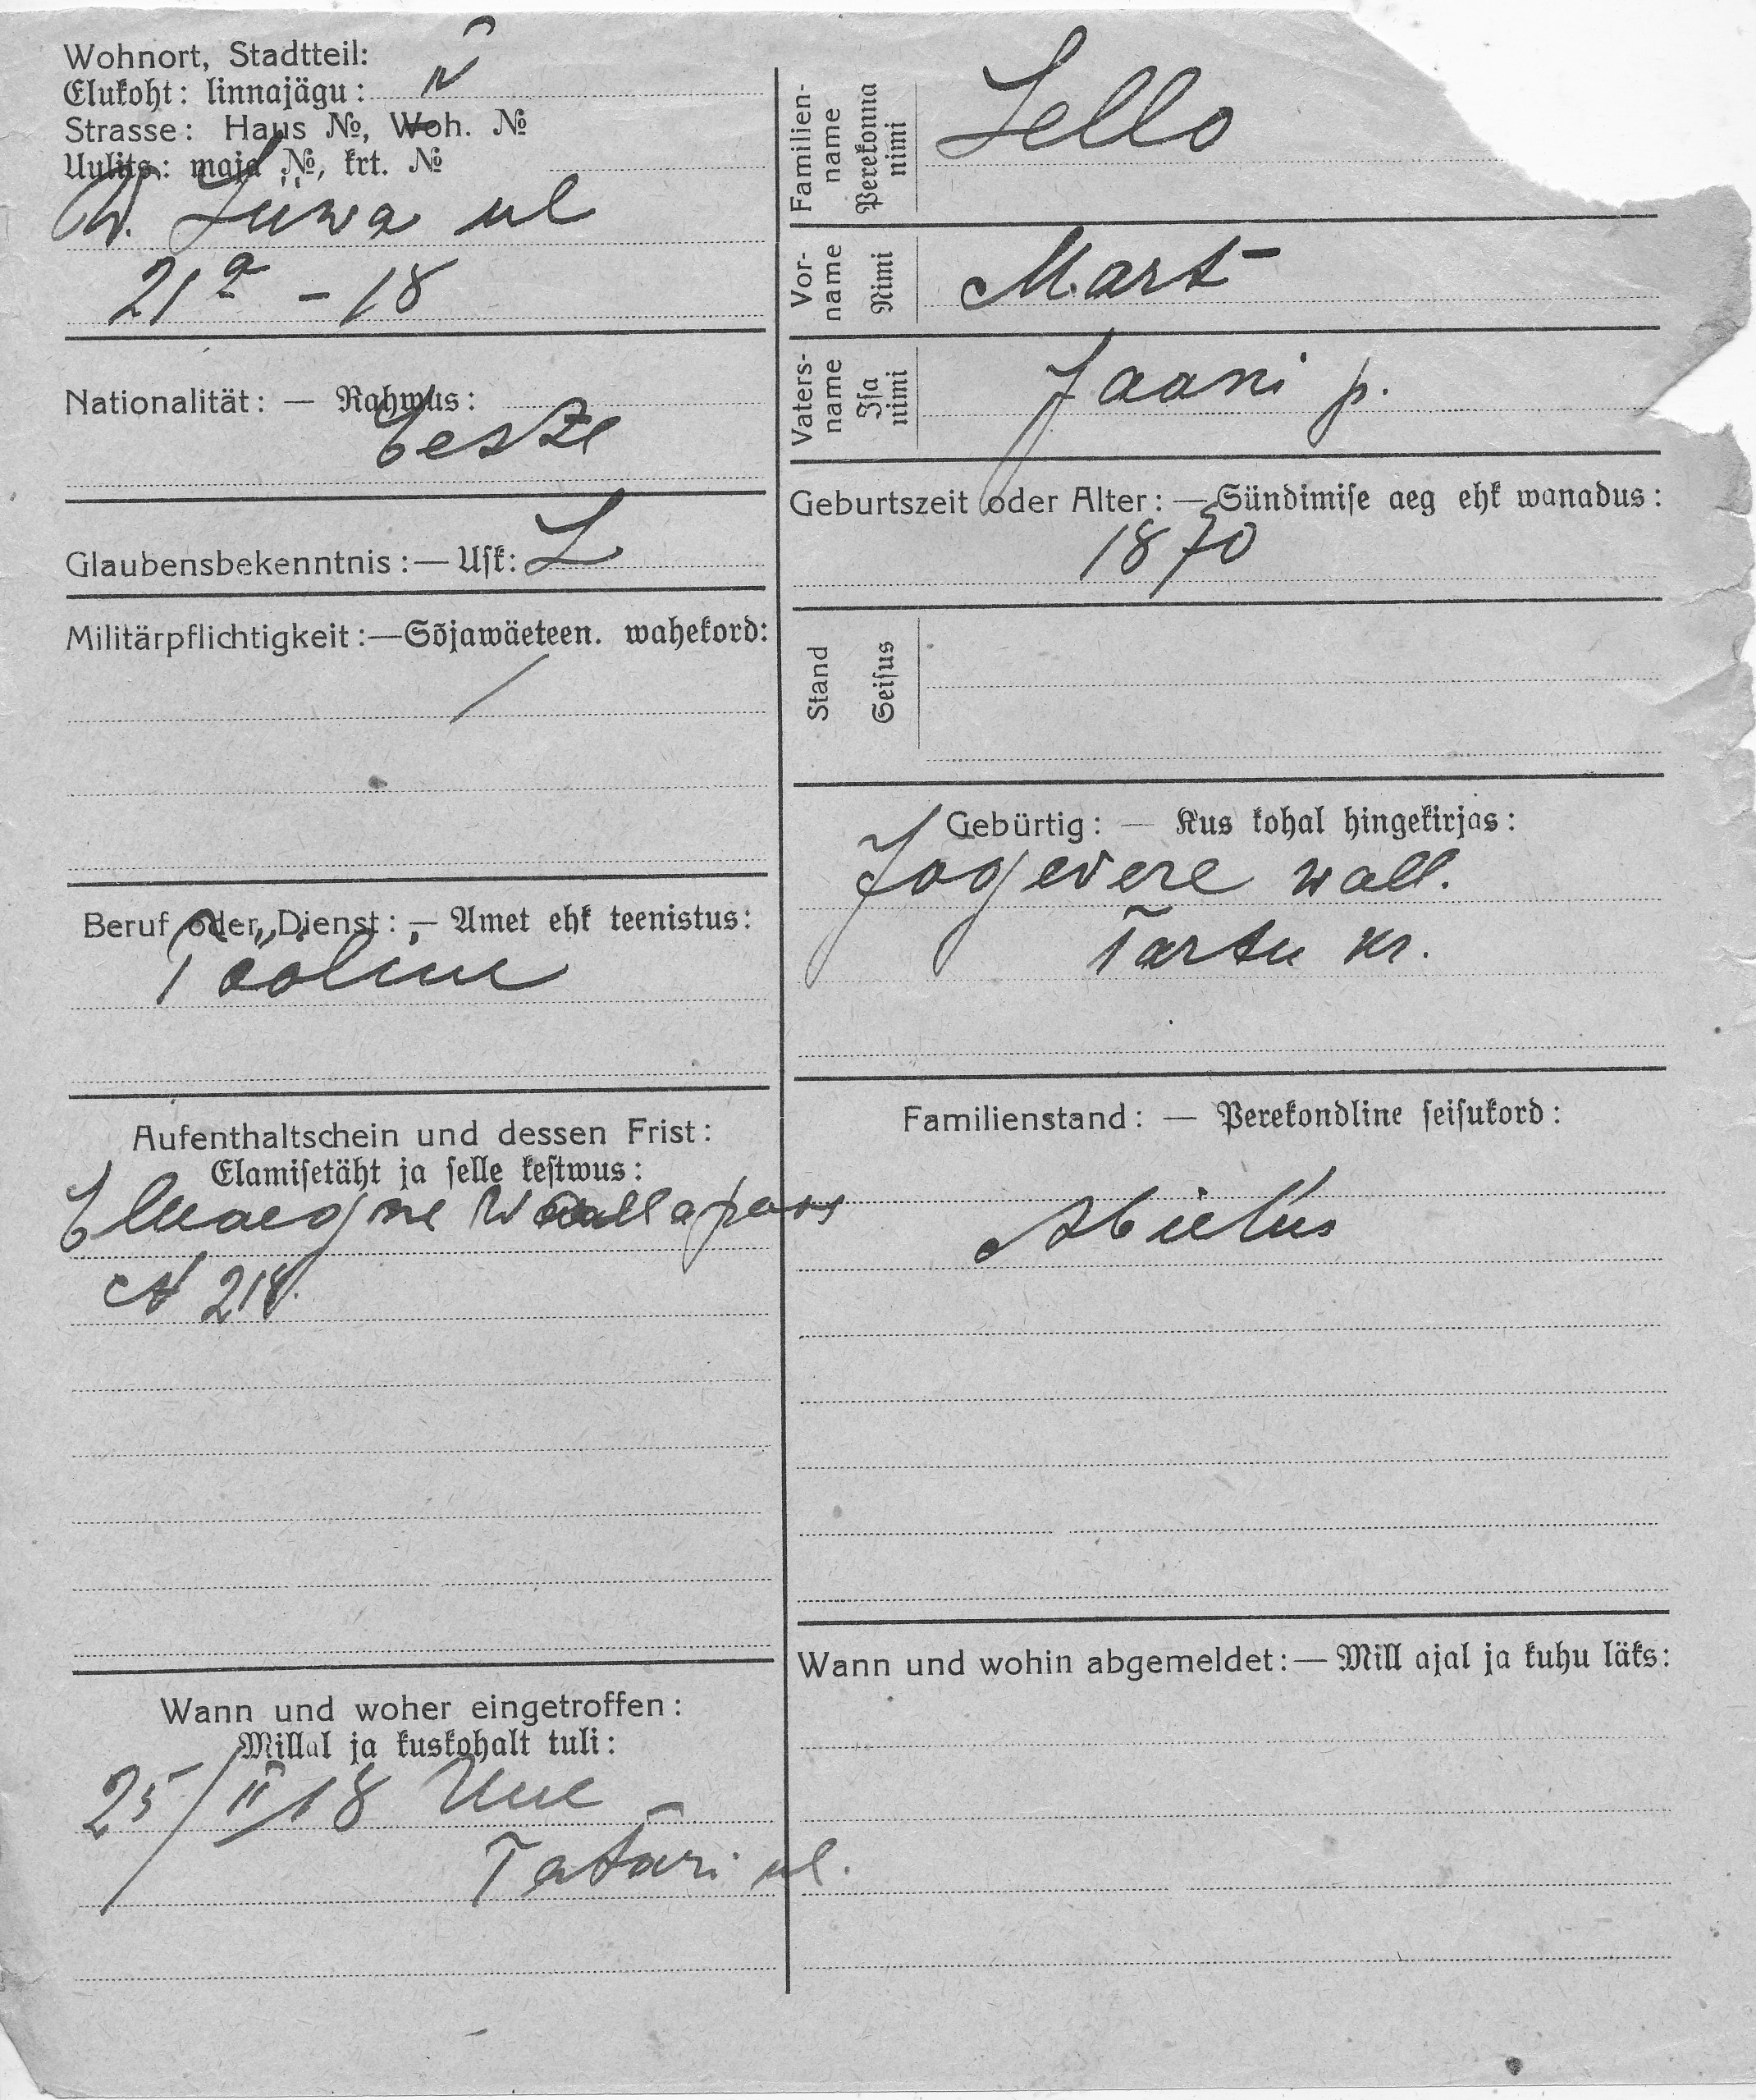 Wohnort, Stadtteil:
Elukoht: linnajägu: IV
Strasse: Haus №, Woh. №
Uulits: maja №, krt. №
W. Liiwa ul
21a – 18
Nationalität: — Rahwus:
Eestl
Glaubensbekenntnis:— Usk: L
Militärpflichtigkeit:—Sõjawäeteen. wahekord:
/
Beruf oder Dienst: — Amet ehk teenistus:
Tööline
Aufenthaltschein und dessen Frist:
Elamisetäht ja selle kestwus:
Eluaegne Wallapass
N 218.
Wann und woher eingetroffen:
Millal ja kuskohalt tuli:
25/II 18 Uue
Tatari ul.
Familien-
name
Perekonna
nimi
Lello
Vor-
name
Nimi
Mart
Vaters-
name
Isa
nimi
Jaani p.
Geburtszeit oder Alter: — Sündimise aeg ehk wanadus:
1870
Stand
Seisus
Gebürtig: — Kus kohal hingekirjas:
Jogevere wall.
Tartu kr.
Familienstand: — Perekondline seisukord:
Abielus
Wann und wohin abgemeldet:— Mill ajal ja kuhu läks: